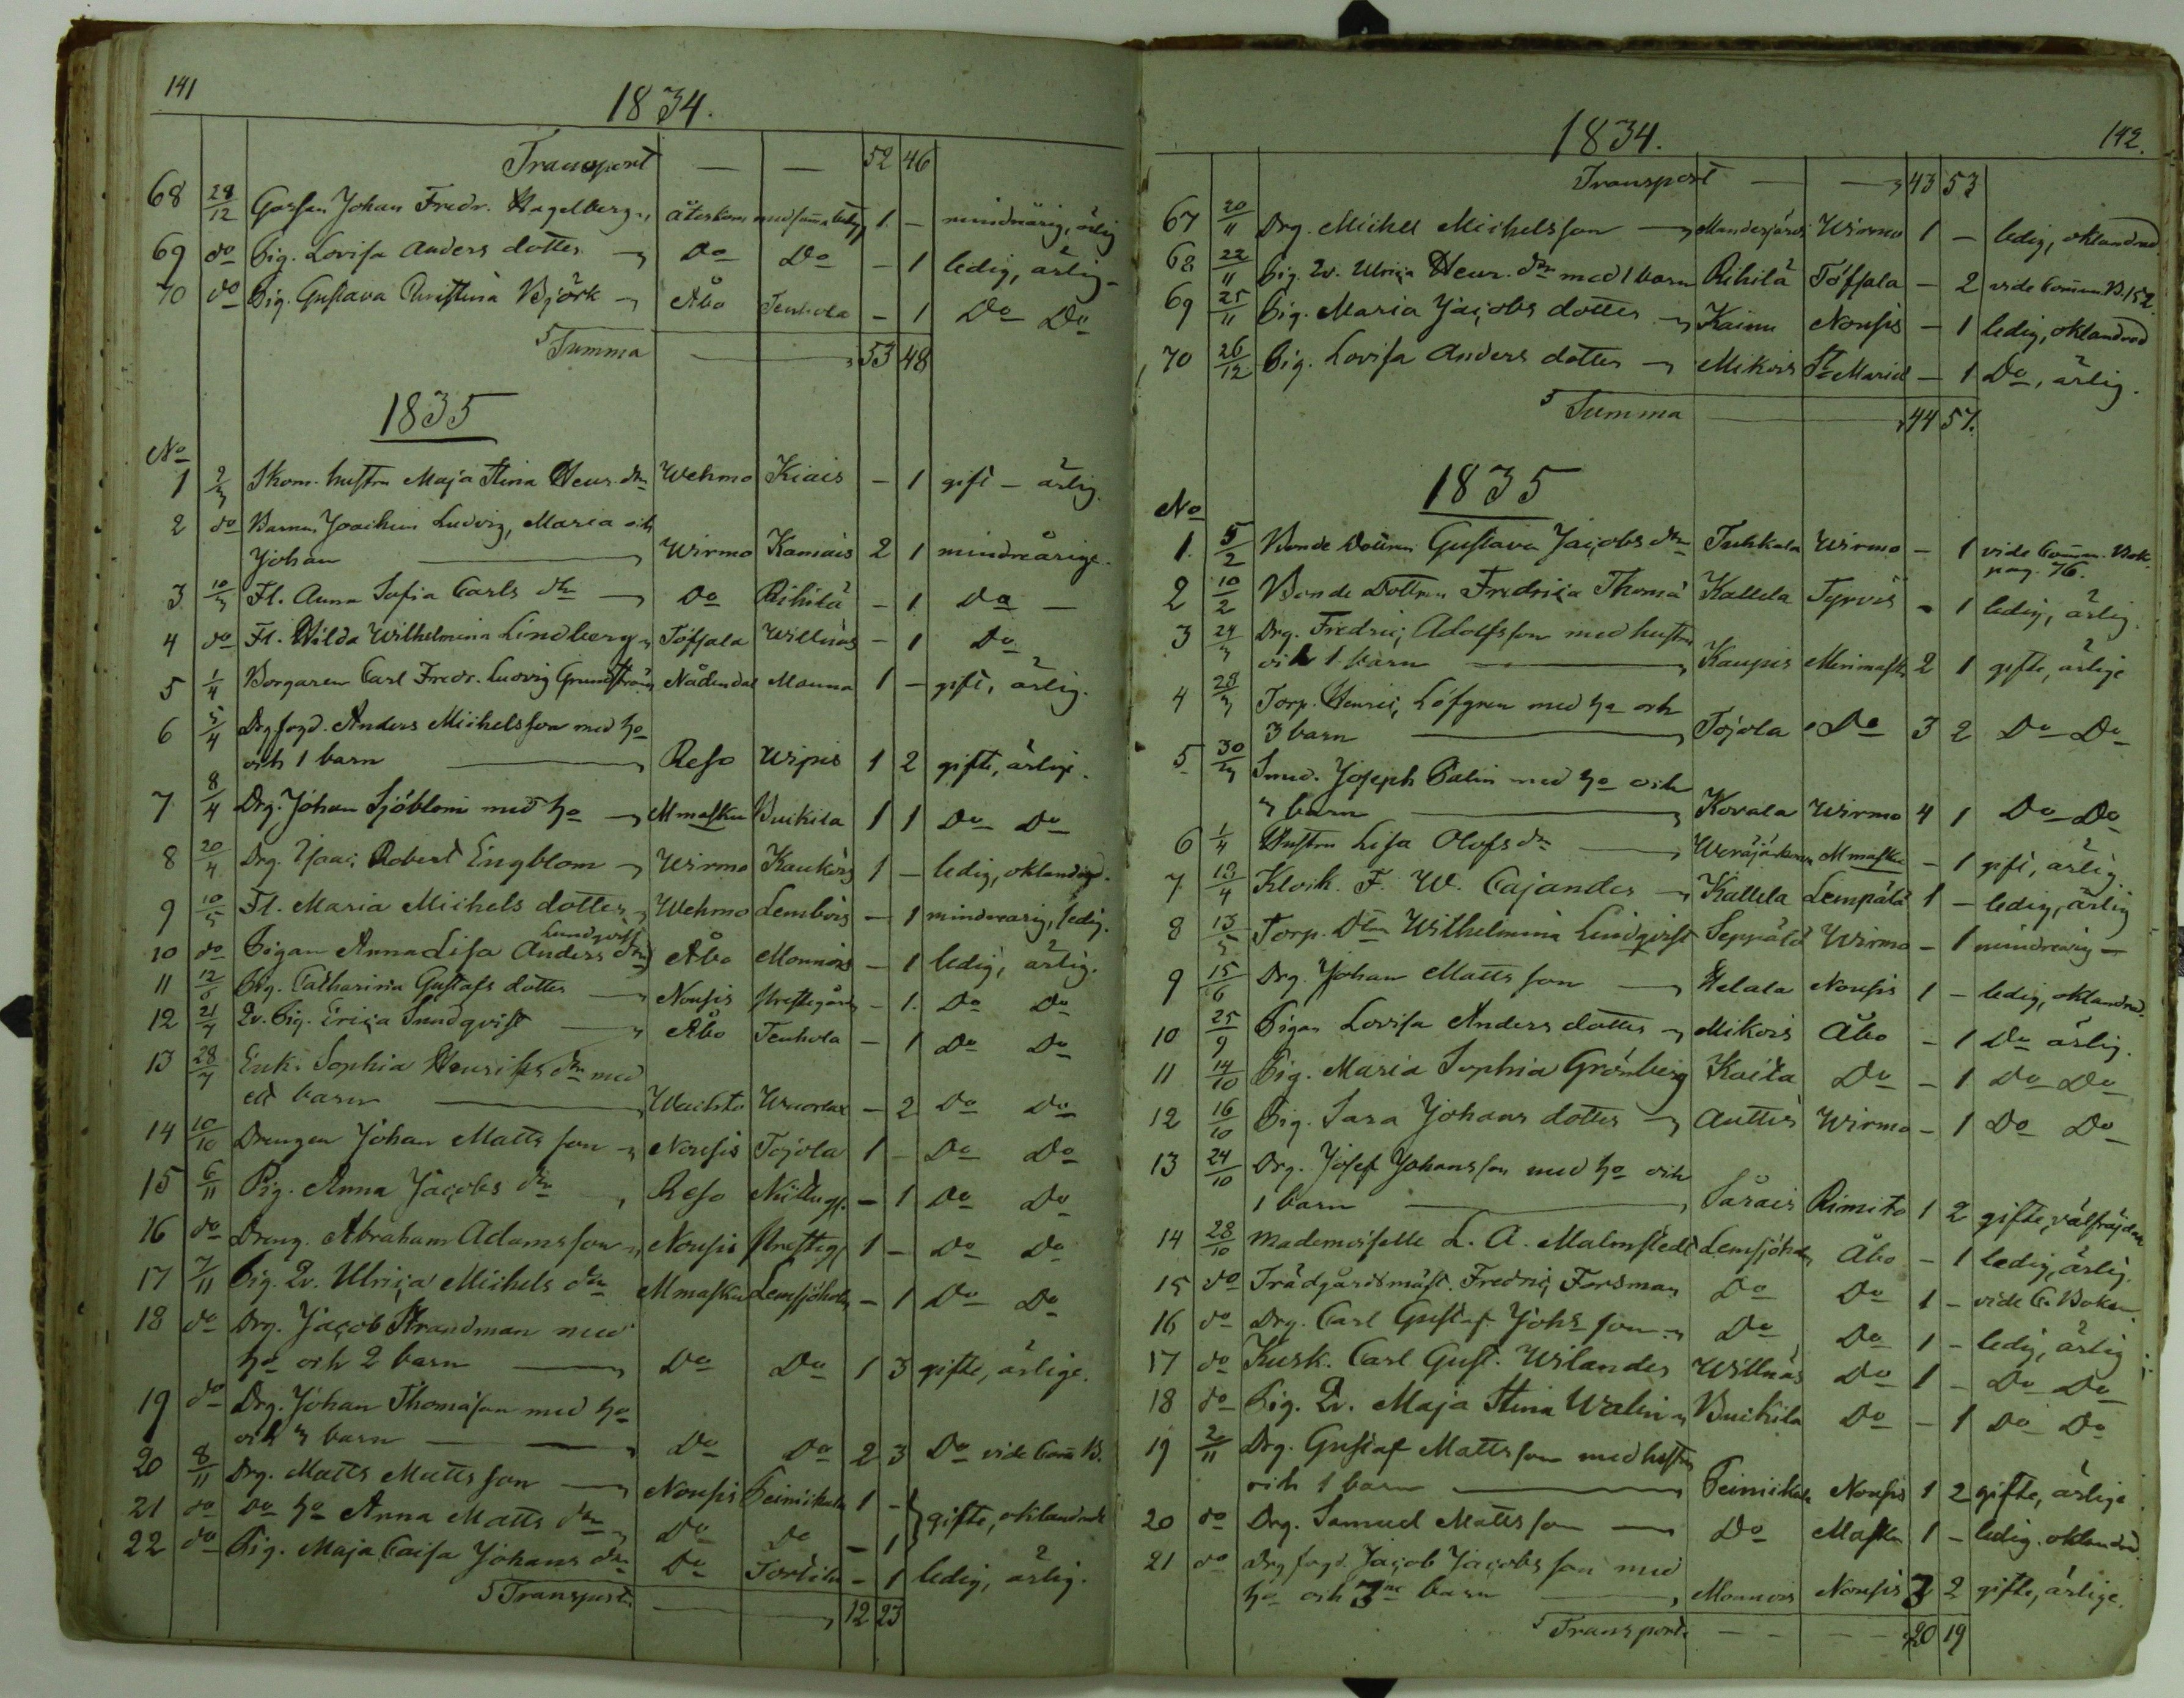 141
1834.
Transport — — 52 46
68 28/12 Gossen Johan Fredr. Hagelberg återkom med sama betyg 1 — minderårig, ärlig
69 do Pig. Lovisa Anders dotter Do Do — 1 ledig, ärlig
70 do Pig. Gustava Christina Björk Åbo Tenhola — 1 Do Do
Summa 53 48
1835
No
1 2/3 Skom. hustru Maja Stina Henr. dr Wehmo Kiais — 1 gift — ärlig.
2 do Barnen Joachim Ludvig, Maria och
Johan Wirmo Kamais 2 1 minderårige.
3 10/3 Fl. Anna Sofia Carls dr Do Rihilä — 1 Do —
4 do Fl. Hilda Wilhelmina Lindberg Töfsala Willnäs — 1 Do
5 1/4 Borgaren Carl Fredr. Ludvig Grundström Nådendal Monna 1 — gift, ärlig.
6 5/4 Drg fogd. Anders Michelsson med ho
och 1 barn Reso Wipis 1 2 gifte, ärlige.
7 8/4 Drg. Johan Sjöblom med ho Mmasku Buikila 1 1 Do Do
8 20/4 Drg. Isaac Robert Engblom Wirmo Kaukois 1 — ledig, oklandrad.
9 10/5 Fl. Maria Michels dotter Wehmo Lembois — 1 minderårig, ledig.
Lundqvist
10 do Pigan Anna Lisa Anders dr Åbo Monnois — 1 ledig, ärlig.
11 12/6 Pig. Catharina Gustafs dotter Nousis Prestegård — 1 Do Do
12 21/7 Qv. Pig. Erica Sundqvist Åbo Tenhola — 1 Do Do
13 28/7 Enk. Sophia Henriks dr med
ett barn Wachto Wuorlax — 2 Do Do
14 10/10 Drengen Johan Matts son Nousis Tojola 1 — Do Do
15 6/11 Pig. Anna Jacobs dr Reso — 1 Do Do
16 do Dreng. Abraham Adamsson Nousis Presteg 1 — Do Do
17 7/11 Pig. Qv. Ulrica Michels dr Mmasku Lemsjöholm — 1 Do Do
18 do Drg. Jacob Strandman med
ho och 2 barn Do Do 1 3 gifte, ärlige.
19 do Drg. Johan Thomasson med ho
och 3 barn Do Do 2 3 Do vide Com. B.
20 8/11 Drg. Matts Matts son Nousis Peinikala 1 —
21 do Do ho Anna Matts dr Do do — 1 gifte, oklandrade
22 do Pig. Maja Caisa Johans dr Do Tortila — 1 ledig, ärlig.
Transport 12 23
1834. 142.
Transport — 43 53
67 20/11 Drg. Michel Michelsson Mandersjärvi Wirmo 1 — ledig, oklandrad
68 22/11 Pig. Qv. Ulrica Henr. dr med 1 barn Rihilä Töfsala — 2 vide Comm. B. 152
69 25/11 Pig. Maria Jacobs dotter Kainu Nousis — 1 ledig, oklandrad
70 26/12 Pig. Lovisa Anders dotter Mikois St Mariæ — 1 Do, ärlig.
Summa 44 57.
1835
No
1. 5/2 Bonde Dottren Gustava Jacobs dr Tukkala Wirmo — 1 vide Comm. Bok.
pag. 76.
2 10/2 Bonde Dottren Fredrica Thomas Kallela Tyrvis — 1 ledig, ärlig.
3 24/3 Drg. Fredric Adolfsson med hustru
och 1 barn Kaupis Merimasku 2 1 gifte, ärlige
4 28/3 Torp. Henric Löfgren med ho och
3 barn Tojola Do 3 2 Do Do
5 30/3 Smed. Joseph Palin med ho och
3 barn Kovala Wirmo 4 1 Do Do
6 1/4 Hustru Lisa Olofs dr Mmasku — 1 gift, ärlig
7 13/4 Klock. F. W. Cajander Kallela Lempälä 1 — ledig, ärlig
8 13/5 Torp. Dtn Wilhelmina Lindqvist Seppälä Wirmo — 1 mindreårig —
9 15/6 Drg. Johan Matts son Helala Nousis 1 — ledig, oklandrad.
10 25/9 Pigan Lovisa Anders dotter Mikois Åbo — 1 Do ärlig.
11 14/10 Pig. Maria Sophia Grönberg Kaita Do — 1 Do Do
12 16/10 Pig. Sara Johans dotter Auttis Wirmo — 1 Do Do
13 24/10 Drg. Josef Johansson med ho och
1 barn Sarais Rimito 1 2 gifte, välfräjdade
14 28/10 Mademoiselle L. A. Malmstedt Lemsjöholm Åbo — 1 ledig, ärlig.
15 do Trädgårdsmäst. Fredric Forsman Do Do 1 — vide C. Boken.
16 do Drg. Carl Gustaf Johs son Do Do 1 — ledig, ärlig
17 do Kusk. Carl Gust. Wilander Willnäs Do 1 — Do Do
18 do Pig. Qv. Maja Stina Walin Buikila Do — 1 Do Do
19 2/11 Drg. Gustaf Mattsson med hustru
och 1 barn Peinikala Nousis 1 2 gifte, ärlige
20 do Drg. Samuel Matts son Do Masku 1 — ledig. oklandrad.
21 do Drg fogd. Jacob Jacobsson med
ho och 3ne barn Monnois Nousis 3 2 gifte, ärlige.
Transport — — 20 19